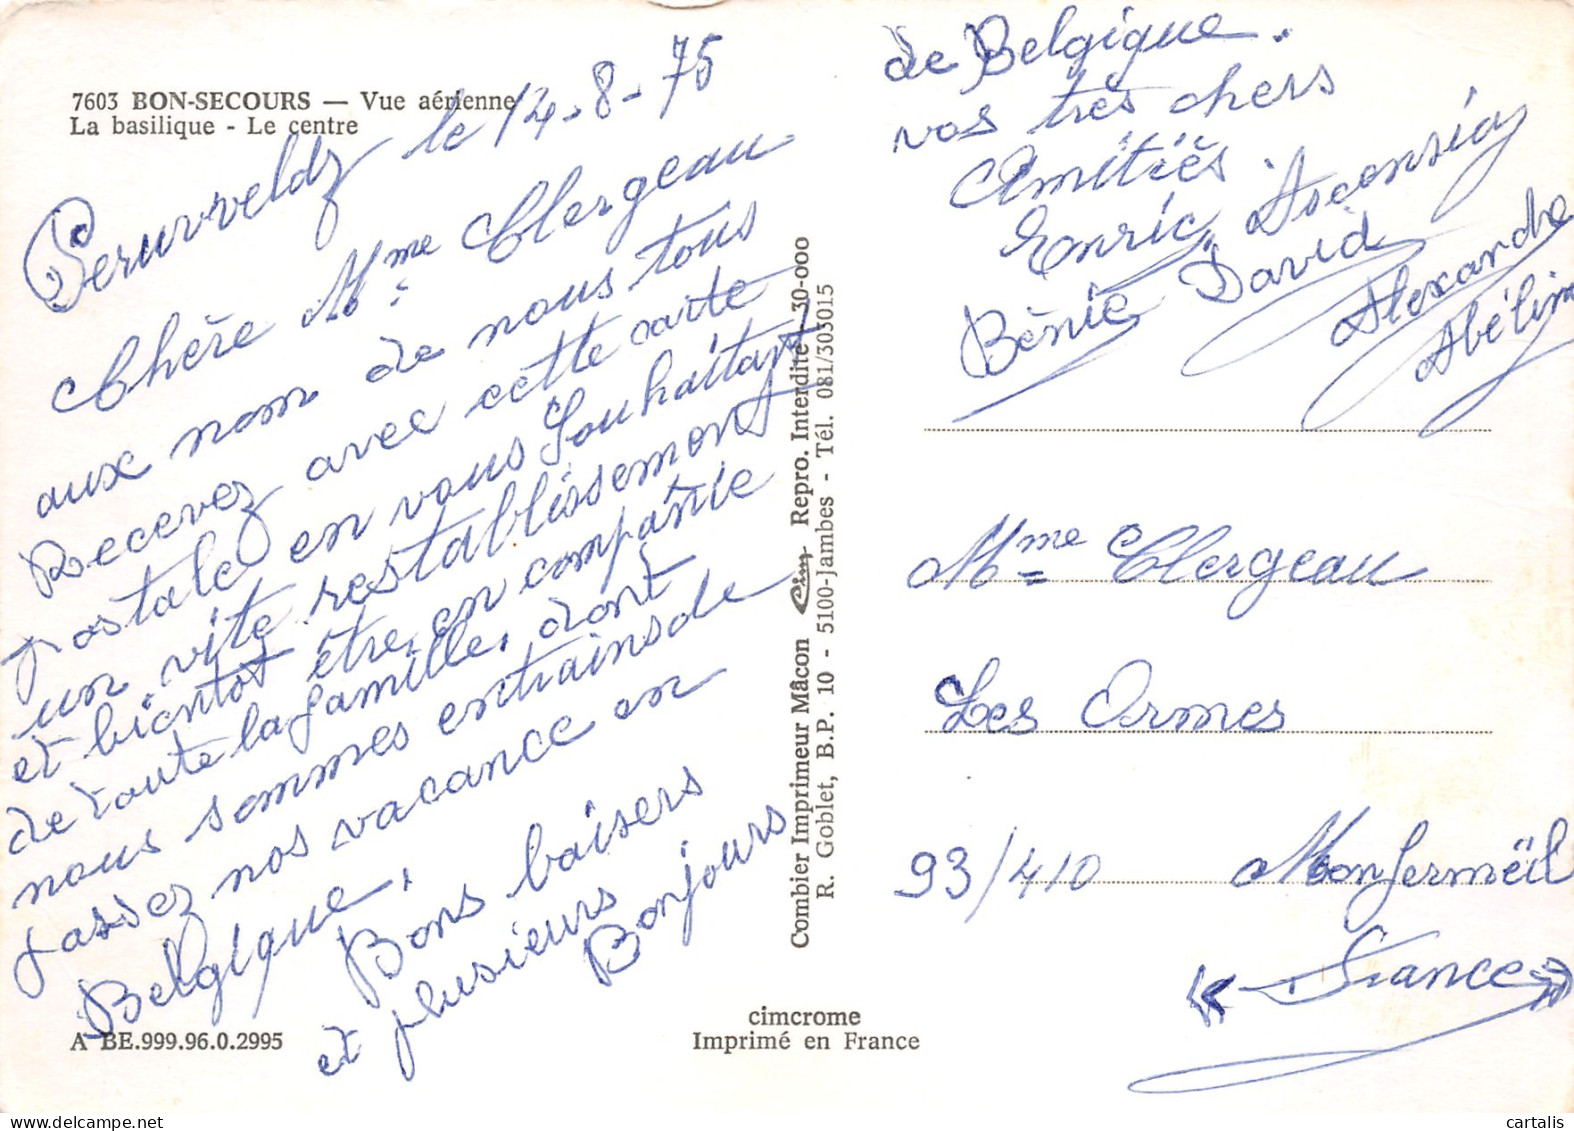 7603 BON-SECOURS — Vue aérienne
La basilique - Le centre
Peruvveldz le 14-8-75
Chère Mme Clergeau
aux nom de nous tous
Recevez avec cette carte
postale en vous souhaitant
un vite restablissement
et bientot être en compania
de toute la famille. dont
nous sommes entrains de
passez nos vacance en
Belgique.
Bons baisers
et plusieurs
Bonjours
A BE.999.96.0.2995
Combier Imprimeur Mâcon Cim Repro. Interdite 30-000
R. Goblet, B.P. 10 - 5100-Jambes - Tél. 081/303015
cimcrome
Imprimé en France
de Belgique.
vos très chers
Amitiès
Enric, Asconsia
Bènie David
Alexandre
Abélin
Mme Clergeau
Les Ormes
93/410 Monfermëil
« France »
cartalis
www.delcampe.net